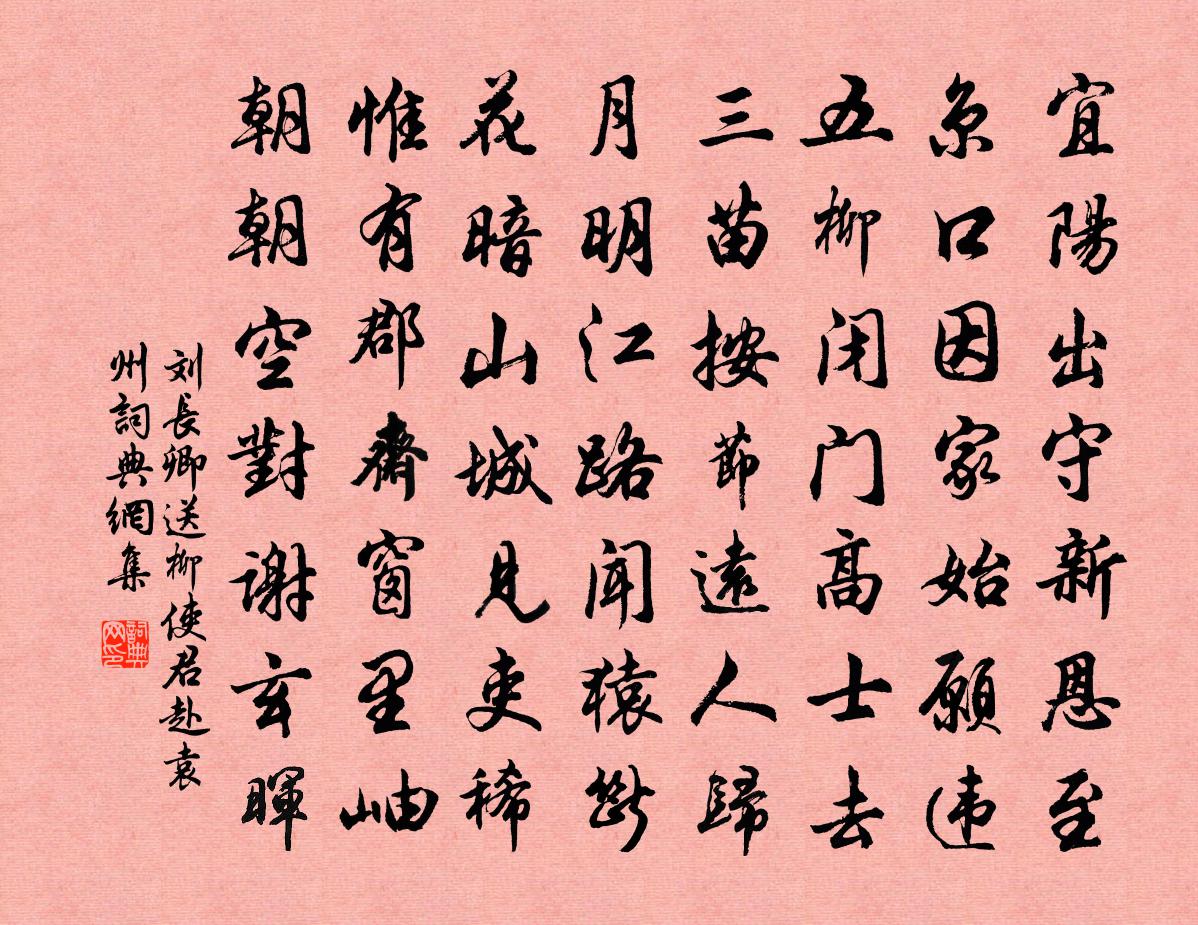 宜陽出守新恩至
京口因家始願违
五柳闭门高士去
三苗按節遠人歸
月明江路闻猿斷
花暗山城見吏稀
惟有郡齋窗里岫
朝朝空對謝玄暉
刘長卿送柳使君赴袁
州詞典網集
詞典网印